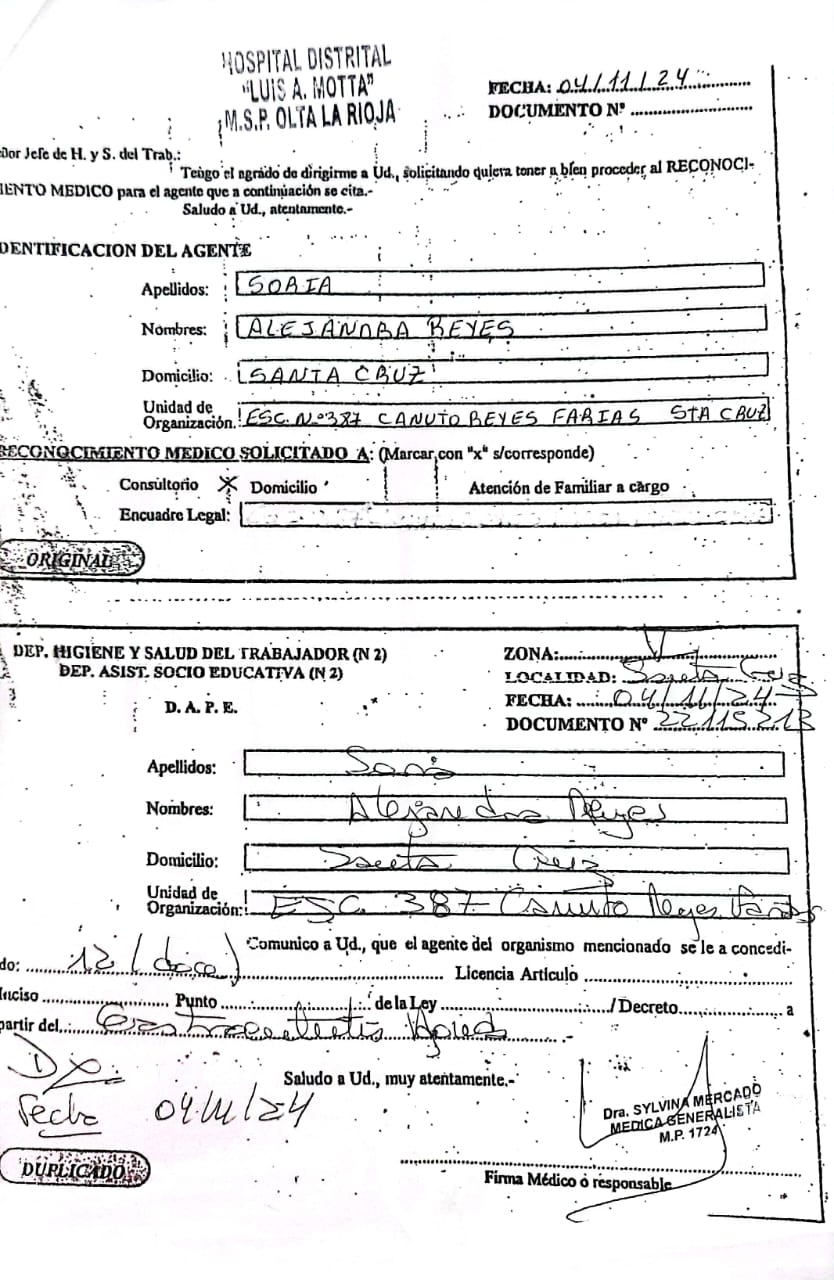 HOSPITAL DISTRITAL
"LUIS A. MOTTA"
M.S.P. OLTA LA RIOJA
FECHA: 04/11/24
DOCUMENTO Nº
ñor Jefe de H. y S. del Trab.:
Tengo el agrado de dirigirme a Ud., solicitando quiera tener a bien proceder al RECONOCI-
IENTO MEDICO para el agente que a continuación se cita.-
Saludo a Ud., atentamente.-
DENTIFICACION DEL AGENTE
Apellidos: SORIA
Nombres: ALEJANDRA REYES
Domicilio: SANTA CRUZ
Unidad de
Organización. ESC. Nº387 CANUTO REYES FARIAS STA CRUZ
RECONOCIMIENTO MEDICO SOLICITADO A: (Marcar con "x" s/corresponde)
Consultorio X Domicilio Atención de Familiar a cargo
Encuadre Legal:
ORIGINAL
DEP. HIGIENE Y SALUD DEL TRABAJADOR (N 2)
DEP. ASIST. SOCIO EDUCATIVA (N 2)
D. A. P. E.
ZONA:
LOCALIDAD: Santa Cruz
FECHA: 04/11/24
DOCUMENTO Nº 22115213
Apellidos: Soria
Nombres: Alejandra Reyes
Domicilio: Santa Cruz
Unidad de
Organización: ESC. 387 Canuto Reyes Farías
Comunico a Ud., que el agente del organismo mencionado se le a concedi-
do: 12 (doce) Licencia Artículo
Inciso Punto de la Ley /Decreto a
partir del
Dx:
Saludo a Ud., muy atentamente.-
Fecha 04/11/24
Dra. SYLVINA MERCADO
MEDICA GENERALISTA
M.P. 1724
DUPLICADO
Firma Médico ó responsable